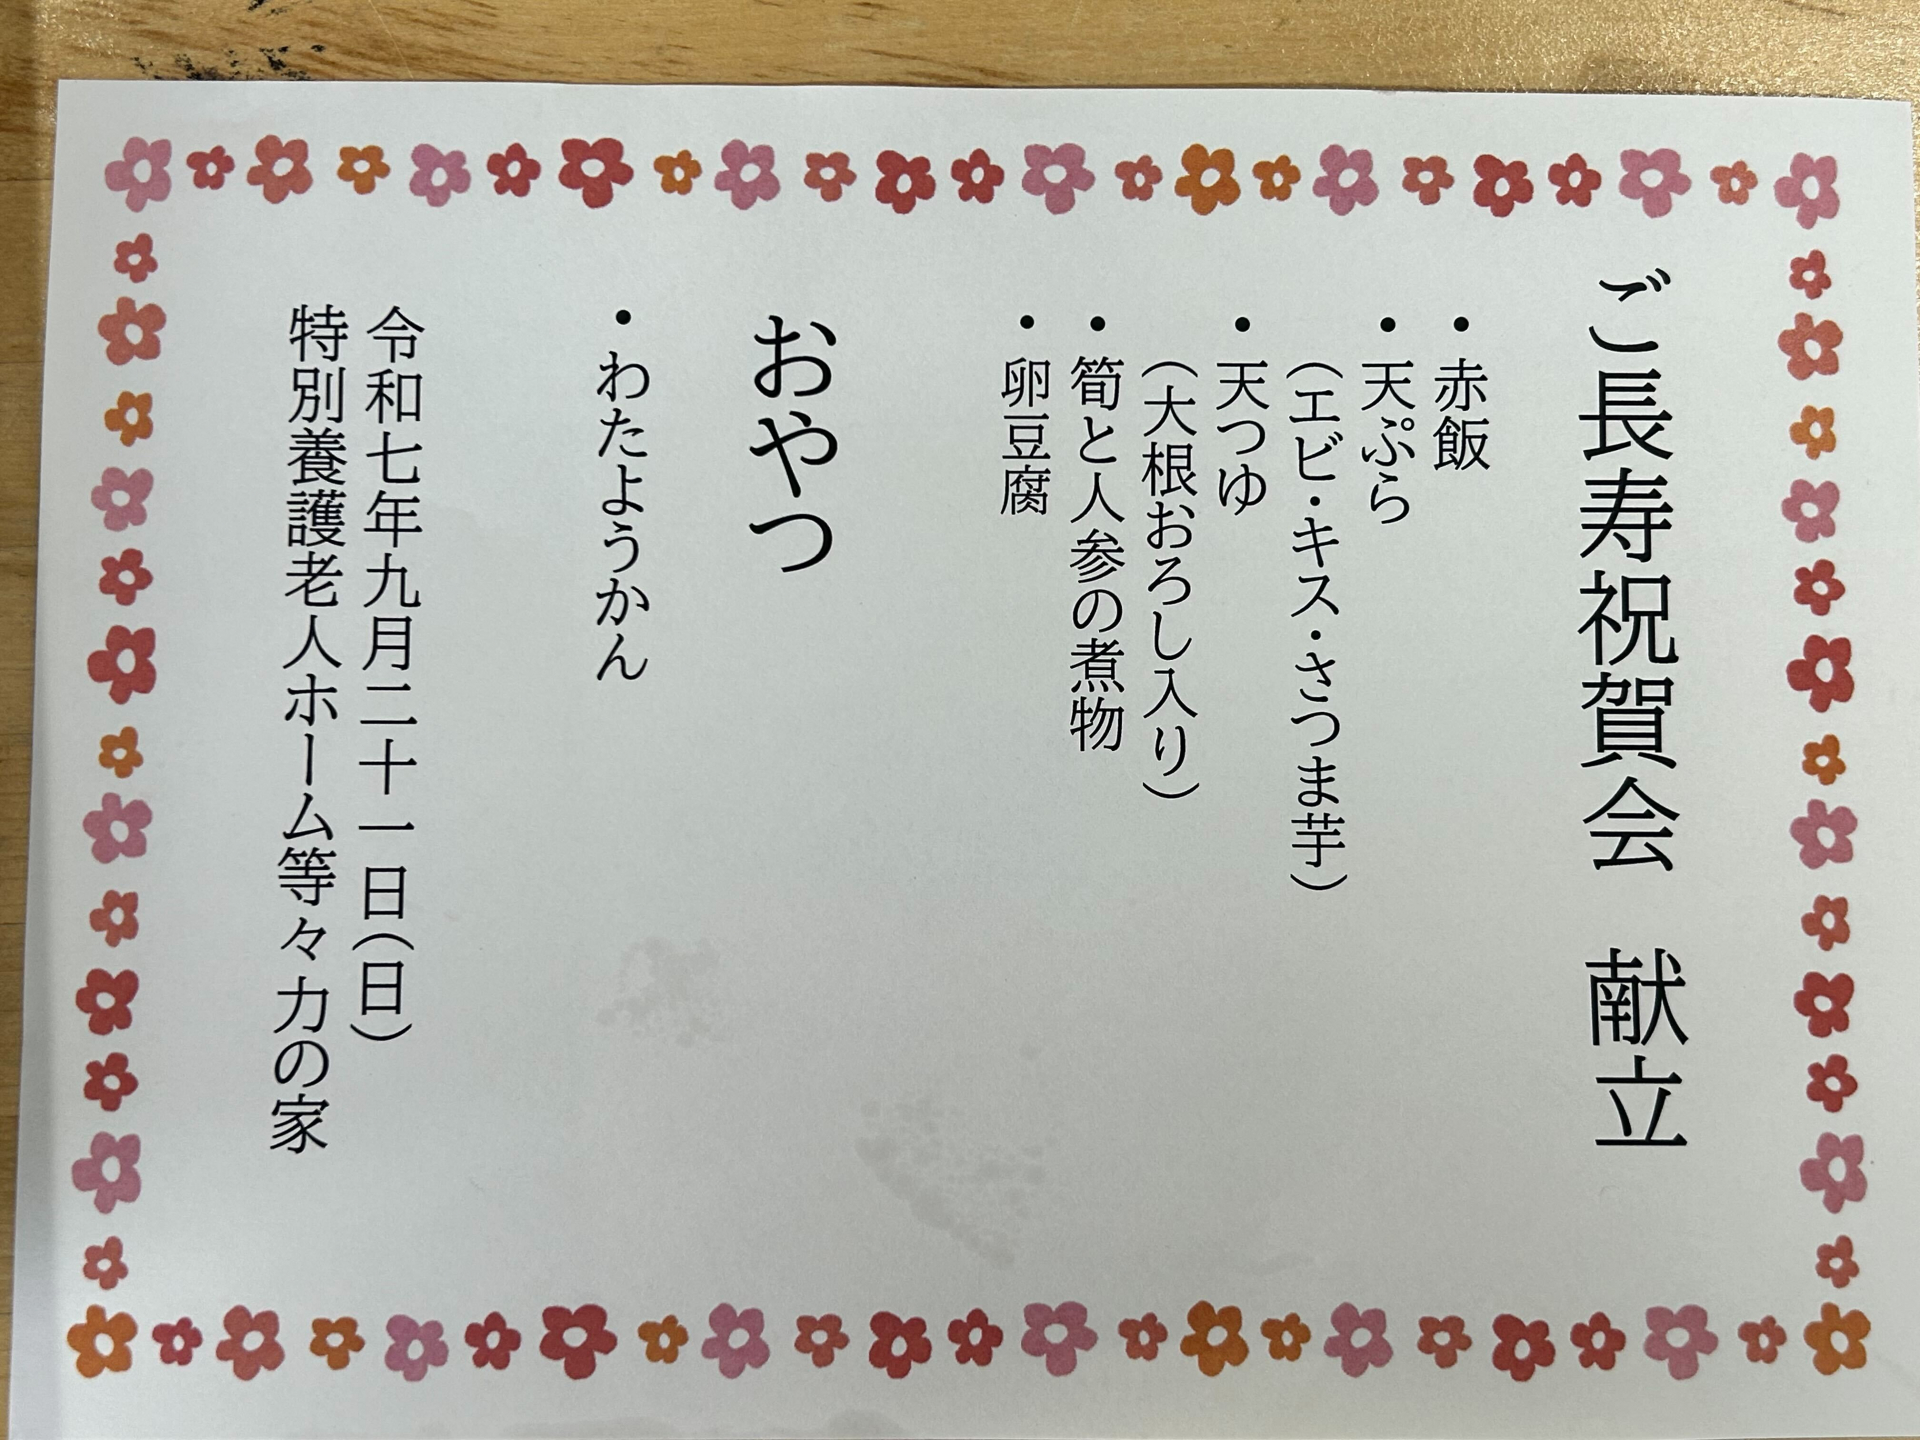 ご長寿祝賀会　献立
・赤飯
・天ぷら
（エビ・キス・さつま芋）
・天つゆ
（大根おろし入り）
・筍と人参の煮物
・卵豆腐
おやつ
・わたようかん
令和七年九月二十一日（日）
特別養護老人ホーム等々力の家